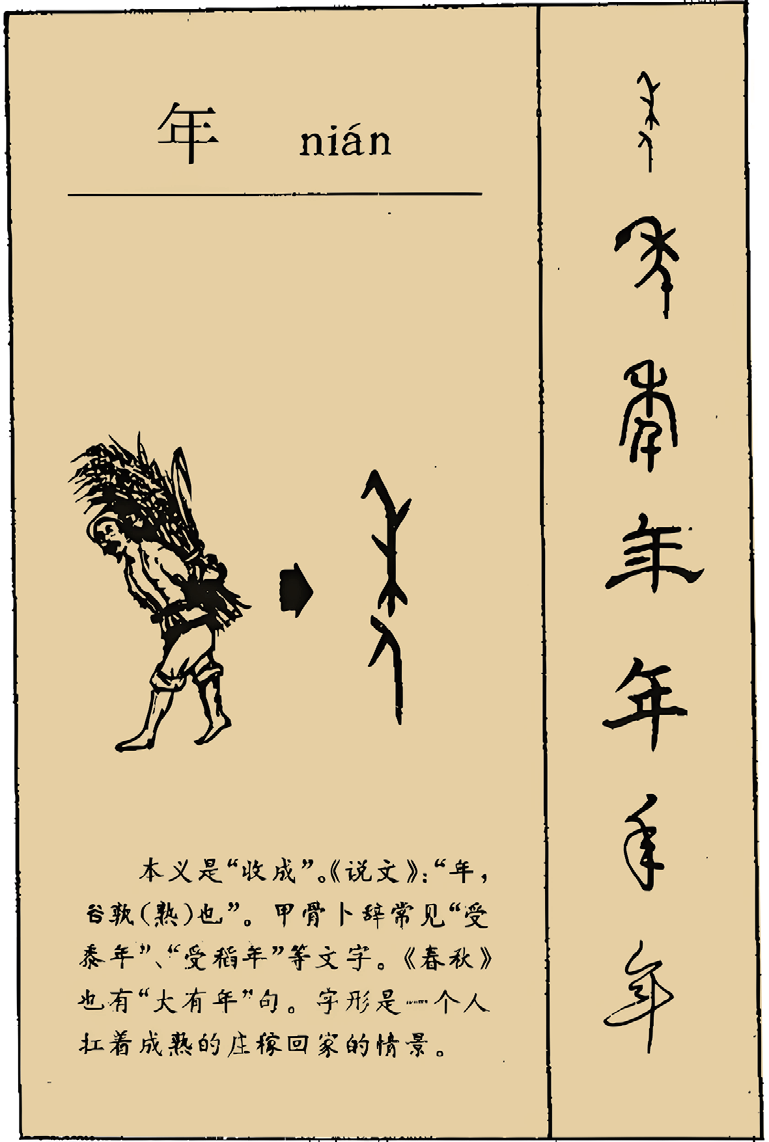 年 nián
本义是“收成”。《说文》:“年,
谷孰(熟)也”。甲骨卜辞常见“受
黍年”、“受稻年”等文字。《春秋》
也有“大有年”句。字形是一个人
扛着成熟的庄稼回家的情景。
年
年
年
年
年
年
年